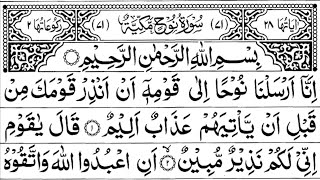 اٰیَاتُهَا ۲۸ (۷۱) سُوْرَةُ نُوْحٍ مَّكِّيَّةٌ (۷۱) رُكُوْعَاتُهَا ۲
بِسْمِ اللّٰهِ الرَّحْمٰنِ الرَّحِيْمِ
اِنَّاۤ اَرْسَلْنَا نُوْحًا اِلٰى قَوْمِهٖۤ اَنْ اَنْذِرْ قَوْمَكَ مِنْ
قَبْلِ اَنْ يَّاْتِيَهُمْ عَذَابٌ اَلِيْمٌ ۝۱ قَالَ يٰقَوْمِ
اِنِّيْ لَكُمْ نَذِيْرٌ مُّبِيْنٌ ۝۲ اَنِ اعْبُدُوا اللّٰهَ وَاتَّقُوْهُ